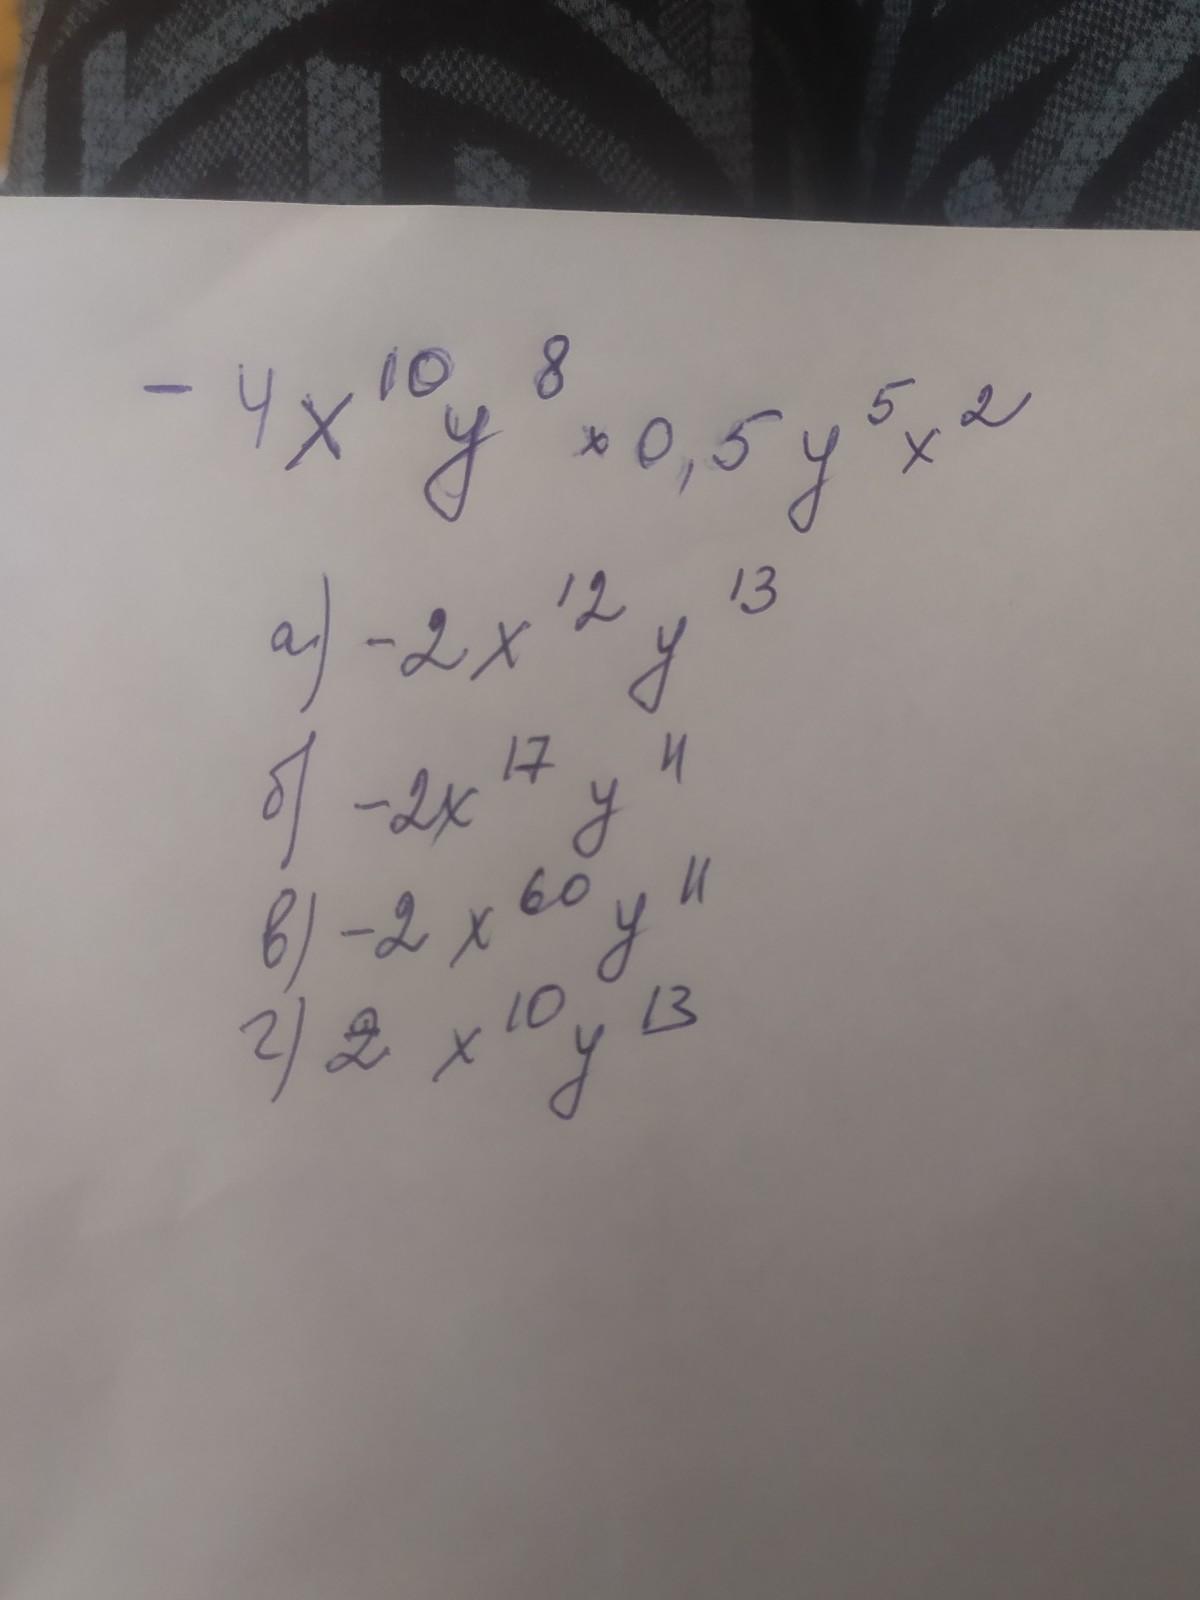 - 4x¹⁰y⁸ * 0,5y⁵x²
а) -2x¹²y¹³
б) -2x¹⁷y¹¹
в) -2x⁶⁰y¹¹
г) 2x¹⁰y¹³